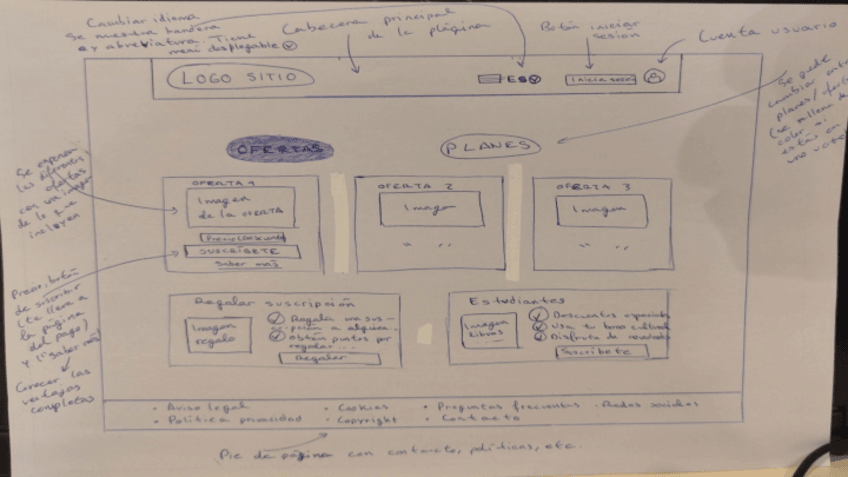 Cambiar idioma
Se muestra bandera
y abreviatura. Tiene
menú desplegable
Cabecera principal
de la página
Botón iniciar
sesion
Cuenta usuario
LOGO SITIO
ES
Inicia sesion
Se puede
cambiar entre
planes/ofertas
(se rellena de
color si
estás en
OFERTAS
PLANES
Se exponen
las diferentes
ofertas
con una imagen
de lo que
incluyen
OFERTA 1
Imagen
de la OFERTA
Precio/Descuento
SUSCRÍBETE
Saber más
OFERTA 2
Imagen
" "
OFERTA 3
Imagen
" "
Precio, botón
de suscribir
(te lleva a
la página
del pago)
y ("saber más")
Conocer las
ventajas
completas
Regalar suscripción
Imagen
regalo
Regala una sus-
cripción a alguien
Obtén puntos por
regalar...
Regalar
Estudiantes
Imagen
libros
Descuentos especiales
Usa tu bono cultural
Disfruta de novedades
Suscríbete
• Aviso legal • Cookies • Preguntas frecuentes • Redes sociales
• Política privacidad • Copyright • Contacto
Pie de página con contacto, políticas, etc.